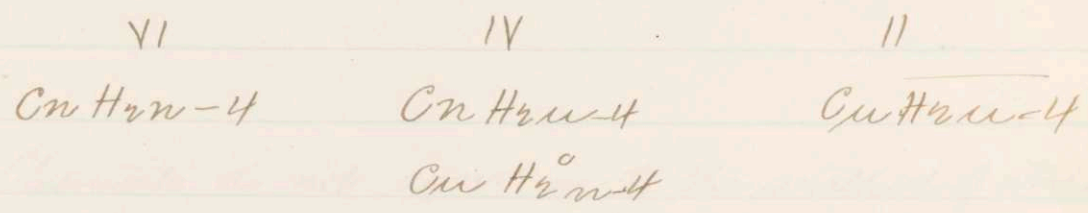 VI IV II
CnH2n-4 CnH2n-4 CnH2n-4
CnH2n-4